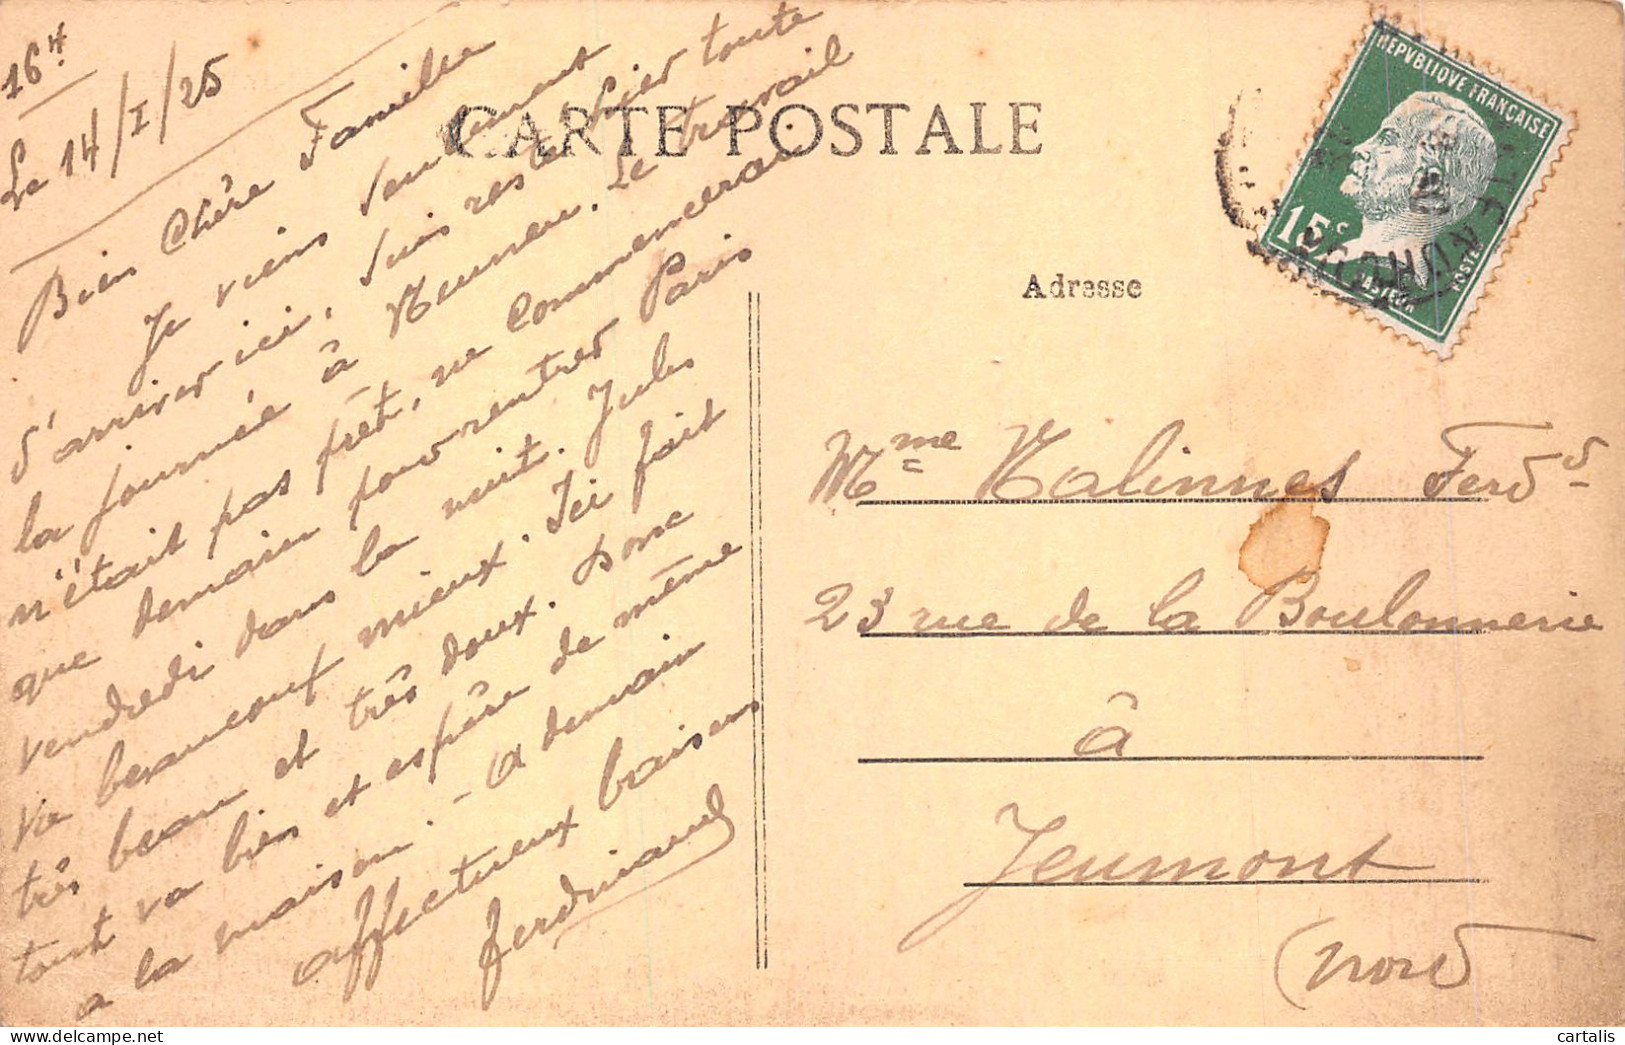 16 H
Le 14/I/25
Bien Chère Famille
Je viens seulement
d'arriver ici, suis resté hier toute
la journée à . Le travail
n'était pas prêt, ne commencerai
que demain pour rentrer Paris
vendredi dans la nuit. Jules
va beaucoup mieux. Ici fait
très beau et très doux. Donc
tout va bien et espère de même
a la maison. - A demain
affectueux baisers
Ferdinand
CARTE POSTALE
REPVBLIQUE FRANÇAISE
15c
PASTEUR
POSTES
Adresse
Mme Malinnes Ferdd
23 rue de la Boulonnerie
à
Jeumont
(Nord
cartalis